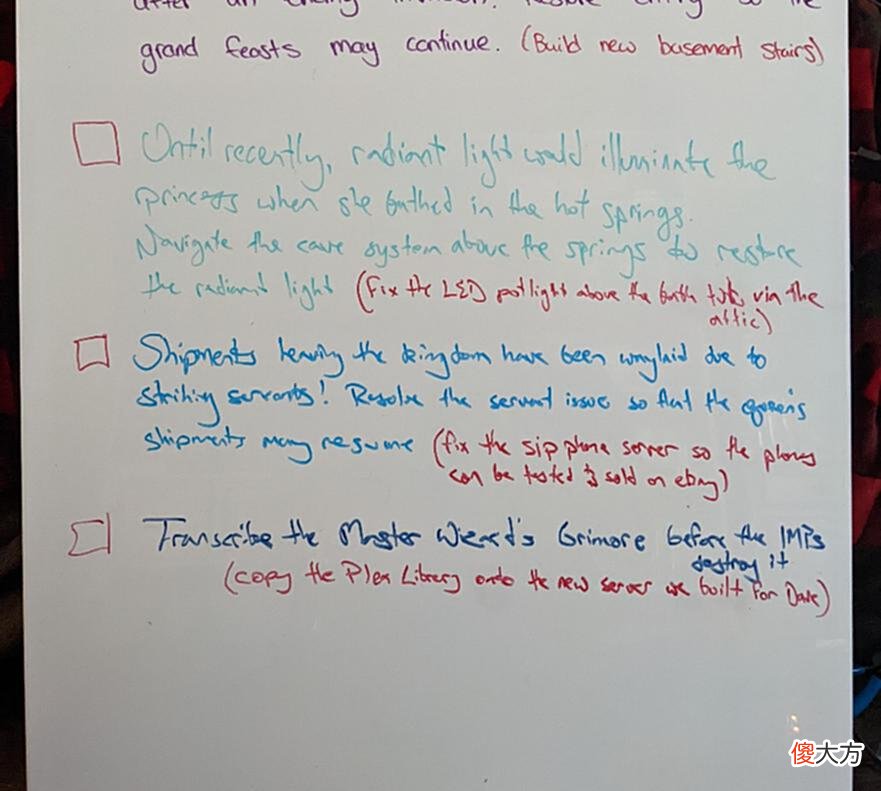 grand feasts may continue. (Build new basement stairs)
Until recently, radiant light would illuminate the
princess when she bathed in the hot springs.
Navigate the cave system above the springs to restore
the radiant light (Fix the LED potlight above the bath tub, via the
attic)
Shipments leaving the kingdom have been waylaid due to
striking servants! Resolve the servant issue so that the queen's
shipments may resume (fix the sip phone server so the phones
can be tested & sold on ebay)
Transcribe the Master Wizard's Grimore before the IMPs
destroy it
(copy the Plex Library onto the new server we built for Dave)
傻大方